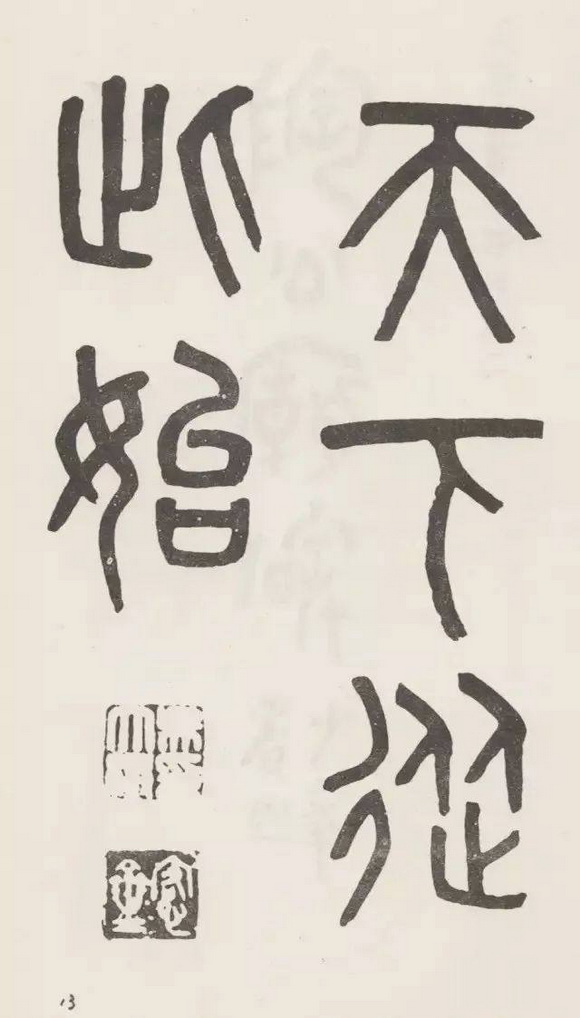 天下從
此始
13